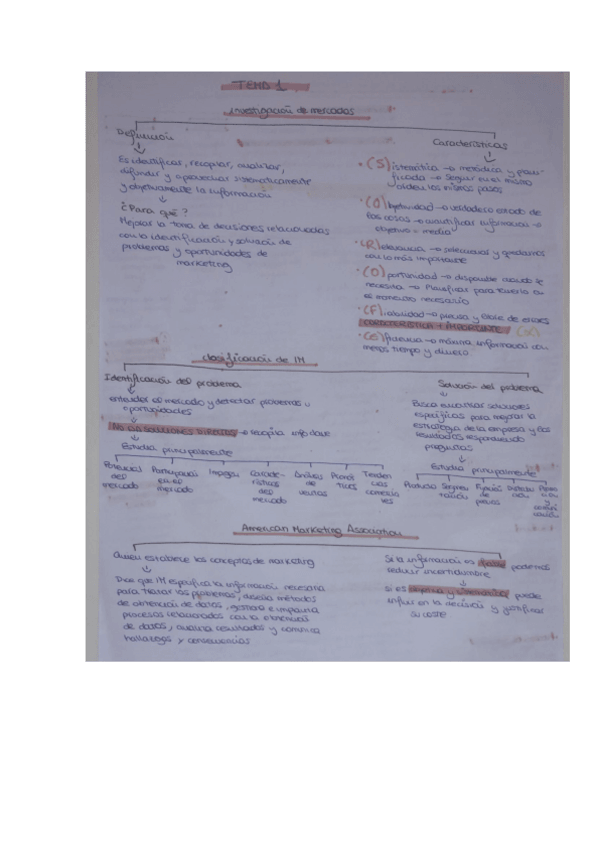 TEMA 1
investigación de mercados
Definición
Es identificar, recopilar, analizar,
difundir y aprovechar sistemáticamente
y objetivamente la información
¿Para qué?
Mejorar la toma de decisiones relacionadas
con la identificación y solución de
problemas y oportunidades de
marketing
Características
(S) istemática → metódica y plani-
ficada → Seguir en el mismo
orden los mismos pasos
(O) bjetividad → verdadero estado de
las cosas → cuantificar información →
objetivo = medir
(R) elevancia → seleccionar y quedarnos
con lo más importante
(O) portunidad → disponible cuando se
necesita → Planificar para tenerla en
el momento necesario
(F) iabilidad → precisa y libre de errores
CARACTERÍSTICA + IMPORTANTE
(E) ficiencia → máxima información con
menos tiempo y dinero
clasificación de IM
Identificación del problema
entender el mercado y detectar problemas u
oportunidades
NO DA SOLUCIONES DIRECTAS → recopila info clave
Estudia principalmente
Potencial del mercado
Participación en el mercado
Imagen
Caracte-rísticas del mercado
Análisis de ventas
Pronós ticos
Tenden cias comercia les
Solución del problema
Busca encontrar soluciones
específicas para mejorar la
estrategia de la empresa y los
resultados respondiendo
preguntas
Estudia principalmente
Producto
Segmen tación
de precios
American Marketing Association
Quien establece los conceptos de marketing
Dice que IM especifica la información necesaria
para tratar los problemas, diseña métodos
de obtención de datos, gestiona e implanta
procesos relacionados con la obtención
de datos, analiza resultados y comunica
hallazgos y consecuencias
Si la información es podemos
reducir incertidumbre
si es puede
influir en la decisión y justificar
su coste